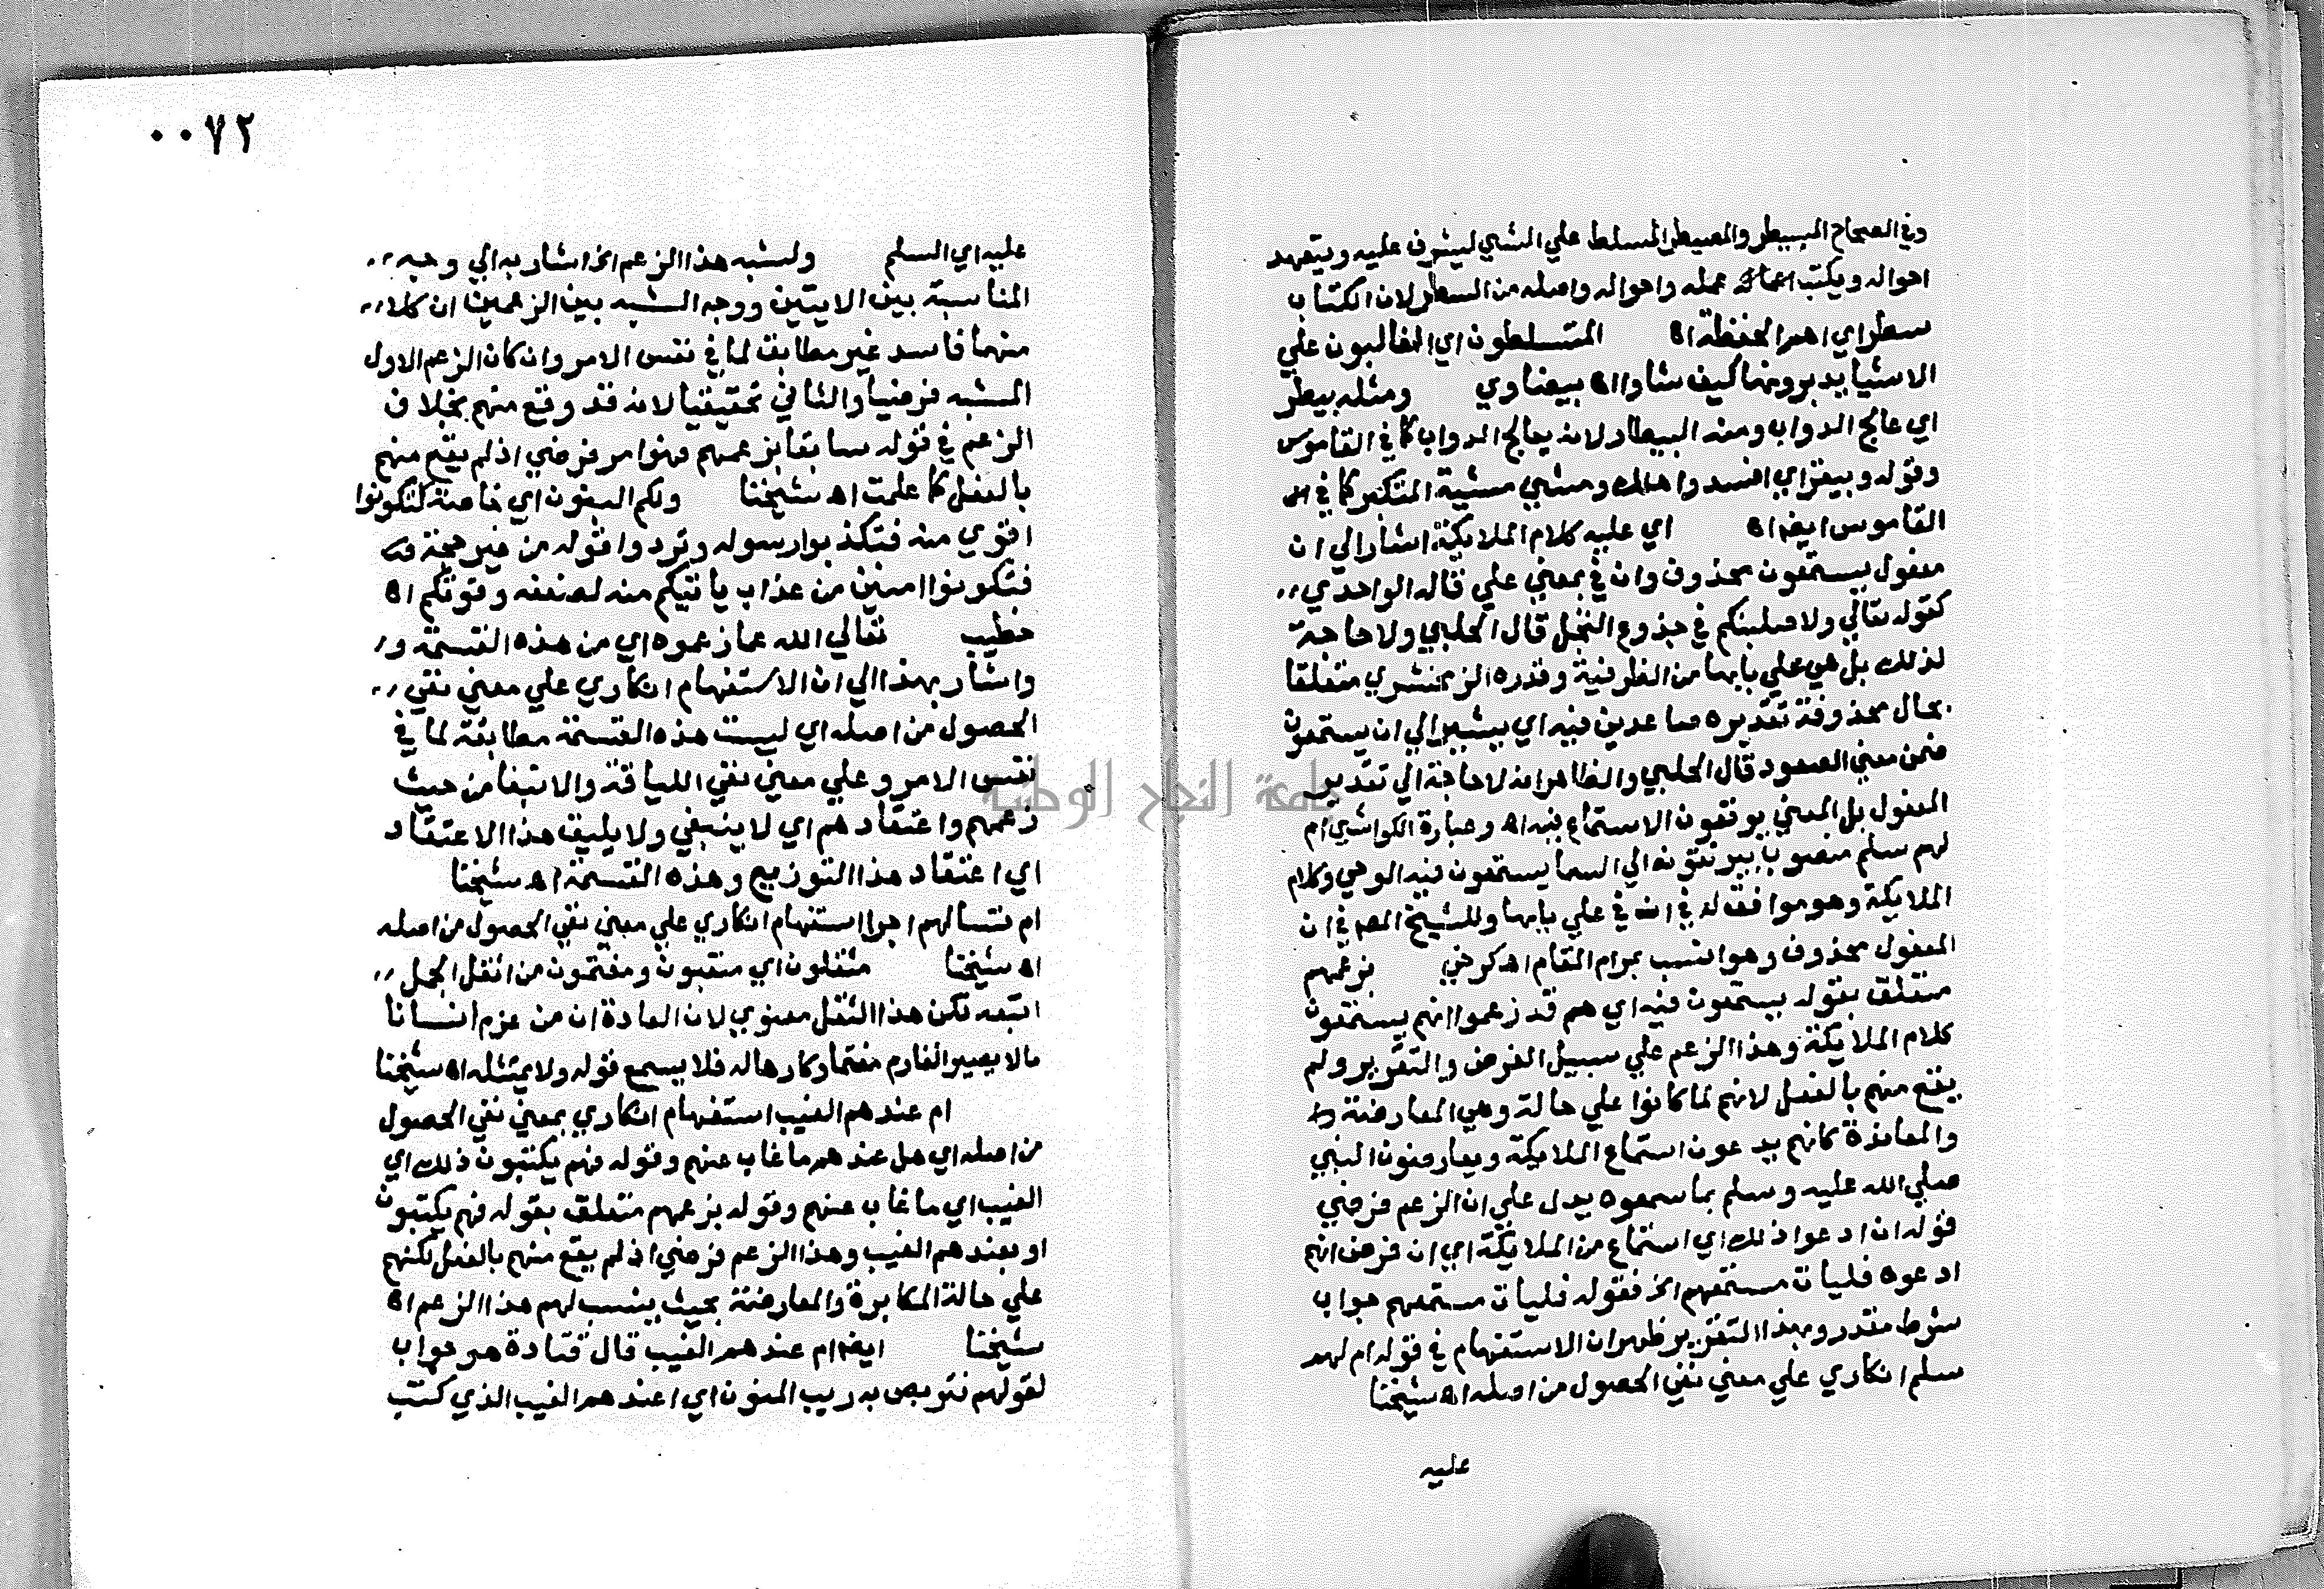 وفي الصحاح المسيطر والمصيطر المسلط علي الشي ليشرف عليه ويتعهد
احواله ويكتب عمله واحواله واصله من السطر لان الكتاب
سطر اي اهم الحفظة اه المتسلطون اي الغالبون علي
الاشيا يدبرونها كيف شاوا اه بيضاوي ومثله بيطر
اي عالج الدواب ومنه البيطار لانه يعالج الدواب كما في القاموس
وقوله وبيقر اي افسد واهلك ومشي مشية المتكبر كما في
القاموس ايضا اه اي عليه كلام الملايكة اشار الي ان
مفعول يستمعون محذوف وان في بمعني علي قاله الواحدي
كقوله تعالي ولاصلبنكم في جذوع النخل قال الحلبي ولا حاجة
لذلك بل هي علي بابها من الظرفية وقدره الزمخشري متعلقا
بحال محذوفة تقديره صاعدين فيه اي يشير الي ان يستمعون
ضمن معني الصعود قال الحلبي والظاهر انه لا حاجة الي تقدير
المفعول بل المعني يوقعون الاستماع فيه اه وعبارة الكواشي ام
لهم سلم منصوبا يرتقون الي السما يستمعون فيه الوحي وكلام
الملايكة وهو موافق له في ان في علي بابها وللشيخ المص في ان
المفعول محذوف وهو انسب بمرام المقام اه كرخي بزعمهم
متعلق بقوله يستمعون فيه اي هم قد زعموا انهم يستمعون
كلام الملايكة وهذا الزعم علي سبيل الفرض والتقرير ولم
يقع منهم بالفعل لانهم لما كانوا علي حالة وهي المعارضة وا
والمعاندة كانهم يدعون استماع الملايكة ويعارضون النبي
صلي الله عليه وسلم بما سمعوه يدل علي ان الزعم فرضي
قوله ان ادعوا ذلك اي استماع من الملايكة اي ان فرض انهم
ادعوه فليات مستمعهم الخ فقوله فليات مستمعهم جواب
شرط مقدر وبهذا التقرير ظهر ان الاستفهام في قوله ام لهم
سلم انكاري علي معني نفي الحصول من اصله اه شيخنا
عليه
٠٠٧٢
عليه اي السلم ولشبه هذا الزعم الخ اشار به الي وجه
المناسبة بين الايتين ووجه الشبه بين الزعمين ان كلا
منهما فاسد غير مطابق لما في نفس الامر وان كان الزعم الاول
المشبه فرضيا والثاني تحقيقيا لانه قد وقع منهم بخلاف
الزعم في قوله سابقا بزعمهم فهو امر فرضي اذ لم يقع منهم
بالفعل كما علمت اه شيخنا ولكم البنون اي خاصة لتكونوا
اقوي منه فتكذبوا رسوله وتردوا قوله من غير حجة
فتكونوا امنين من عذاب ياتيكم منه لضعفه وقوتكم اه
خطيب تعالي الله عما زعموه اي من هذه القسمة و
واشار بهذا الي ان الاستفهام انكاري علي معني نفي
الحصول من اصله اي ليست هذه القسمة مطابقة لما في
نفس الامر وعلي معني نفي اللياقة والابتغا من حيث
زعمهم واعتقادهم اي لا ينبغي ولا يليق هذا الاعتقاد
اي اعتقاد هذا التوزيع وهذه القسمة اه شيخنا
ام تسالهم اجرا استفهام انكاري علي معني نفي الحصول من اصله
اه شيخنا مثقلون اي متعبون ومغتمون من اثقل الحمل
اتعبه لكن هذا الثقل معنوي لان العادة ان من غرم انسانا
مالا يصير الغارم مغتما وكارها له فلا يسمع قوله ولا يمتثله اه شيخنا
ام عندهم الغيب استفهام انكاري بمعني نفي الحصول
من اصله اي هل عندهم ما غاب عنهم وقوله فهم يكتبون ذلك اي
الغيب اي ما غاب عنهم وقوله بزعمهم متعلق بقوله فهم يكتبون
او بعندهم الغيب وهذا الزعم فرضي اذ لم يقع منهم بالفعل لكنهم
علي حالة المكابرة والمعارضة بحيث ينسب لهم هذا الزعم اه
شيخنا ايضا ام عندهم الغيب قال قتادة هو جواب
لقولهم نتربص به ريب المنون اي اعندهم الغيب الذي كتب
جامعة النجاح الوطنية